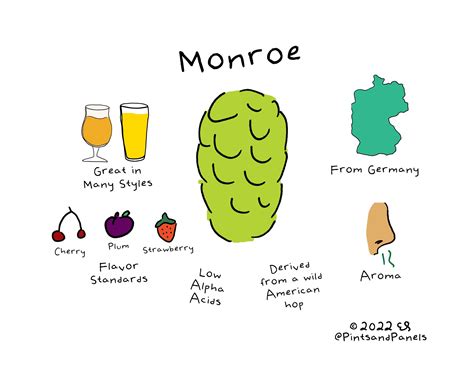 Monroe
Great in
Many Styles
From Germany
Cherry
Plum
Strawberry
Flavor
Standards
Low
Alpha
Acids
Derived
from a wild
American
hop
Aroma
© 2022 ES
@PintsandPanels